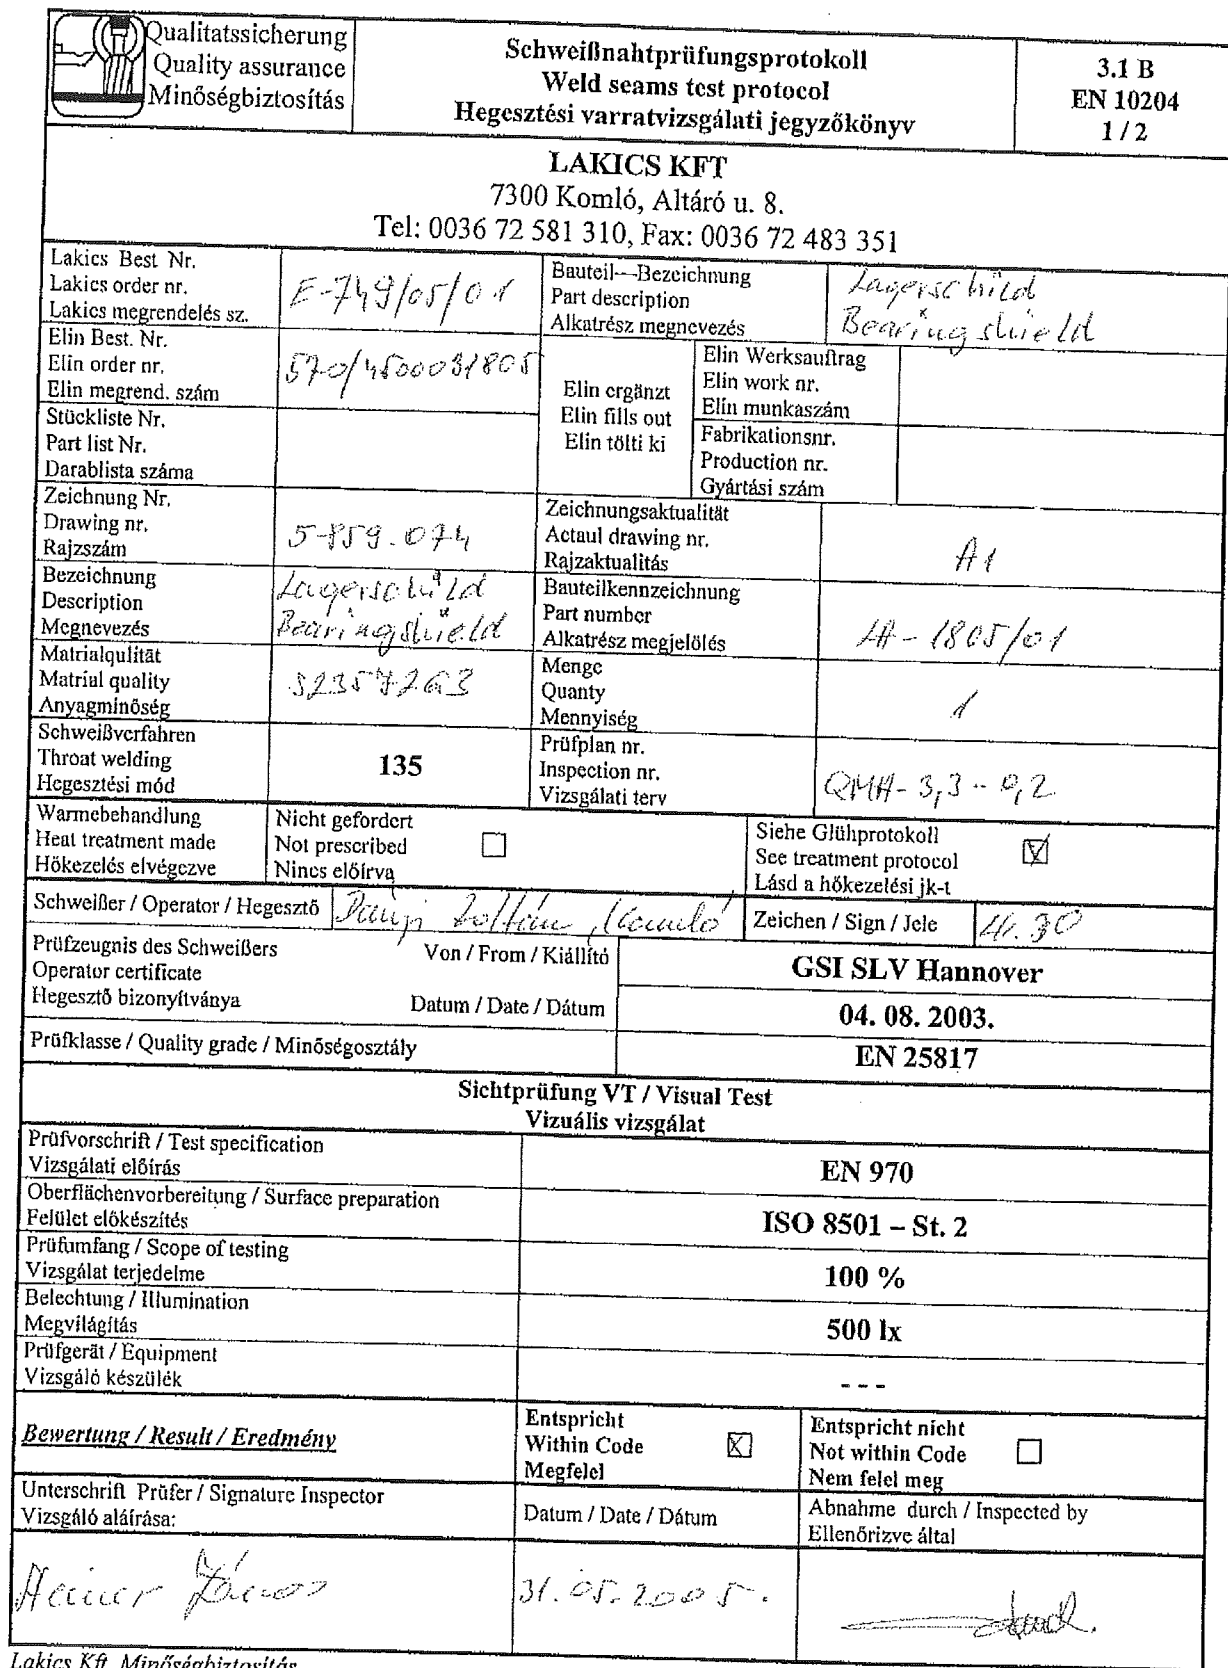 Qualitatssicherung
Quality assurance
Minőségbiztosítás
Schweißnahtprüfungsprotokoll
Weld seams test protocol
Hegesztési varratvizsgálati jegyzőkönyv
3.1 B
EN 10204
1 / 2
LAKICS KFT
7300 Komló, Altáró u. 8.
Tel: 0036 72 581 310, Fax: 0036 72 483 351
Lakics Best Nr.
Lakics order nr.
Lakics megrendelés sz.
E-749/05/01
Bauteil—Bezeichnung
Part description
Alkatrész megnevezés
Lagerschild
Bearingshield
Elin Best. Nr.
Elin order nr.
Elin megrend. szám
570/4500031805
Elin ergänzt
Elin fills out
Elin tölti ki
Elin Werksauftrag
Elin work nr.
Elin munkaszám
Stückliste Nr.
Part list Nr.
Darablista száma
Fabrikationsnr.
Production nr.
Gyártási szám
Zeichnung Nr.
Drawing nr.
Rajzszám
5-859.074
Zeichnungsaktualität
Actaul drawing nr.
Rajzaktualitás
A1
Bezeichnung
Description
Megnevezés
Lagerschild
Bearingshield
Bauteilkennzeichnung
Part number
Alkatrész megjelölés
LA-1805/01
Matrialqulität
Matrial quality
Anyagminőség
S235J2G3
Menge
Quanty
Mennyiség
1
Schweißverfahren
Throat welding
Hegesztési mód
135
Prüfplan nr.
Inspection nr.
Vizsgálati terv
QMA-3,3-0,2
Warmebehandlung
Heat treatment made
Hőkezelés elvégezve
Nicht gefordert
Not prescribed
Nincs előírva
Siehe Glühprotokoll
See treatment protocol
Lásd a hőkezelési jk-t
Schweißer / Operator / Hegesztő
Zoltán, Komló
Zeichen / Sign / Jele
Prüfzeugnis des Schweißers
Operator certificate
Hegesztő bizonyítványa
Von / From / Kiállító
GSI SLV Hannover
Datum / Date / Dátum
04. 08. 2003.
Prüfklasse / Quality grade / Minőségosztály
EN 25817
Sichtprüfung VT / Visual Test
Vizuális vizsgálat
Prüfvorschrift / Test specification
Vizsgálati előírás
EN 970
Oberflächenvorbereitung / Surface preparation
Felület előkészítés
ISO 8501 – St. 2
Prüfumfang / Scope of testing
Vizsgálat terjedelme
100 %
Belechtung / Illumination
Megvilágítás
500 lx
Prüfgerät / Equipment
Vizsgáló készülék
- - -
Bewertung / Result / Eredmény
Entspricht
Within Code
Megfelel
Entspricht nicht
Not within Code
Nem felel meg
Unterschrift Prüfer / Signature Inspector
Vizsgáló aláírása:
Datum / Date / Dátum
Abnahme durch / Inspected by
Ellenőrizve által
János
31.05.2005.
Lakics Kft. Minőségbiztosítás